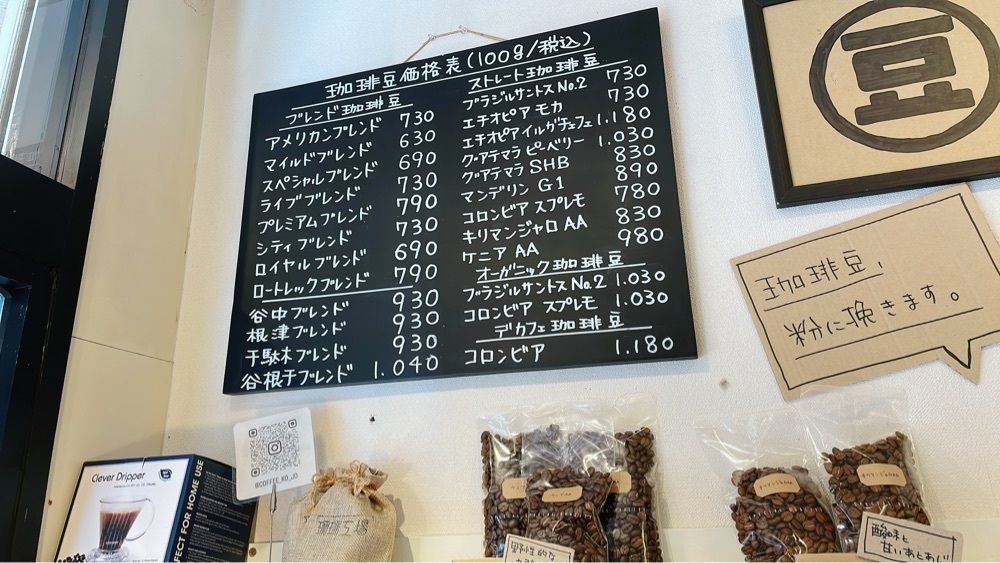 珈琲豆価格表(100g/税込)
ブレンド珈琲豆
アメリカンブレンド 730
マイルドブレンド 630
スペシャルブレンド 690
ライブブレンド 730
プレミアムブレンド 790
シティブレンド 730
ロイヤルブレンド 690
ロートレックブレンド 790
谷中ブレンド 930
根津ブレンド 930
千駄木ブレンド 930
谷根千ブレンド 1.040
ストレート珈琲豆
ブラジルサントスNo.2 730
エチオピアモカ 730
エチオピアイルガチェフェ 1.180
グァテマラピーベリー 1.030
グァテマラSHB 830
マンデリン G1 890
コロンビアスプレモ 780
キリマンジャロAA 830
ケニア AA 980
オーガニック珈琲豆
ブラジルサントスNo.2 1.030
コロンビア スプレモ 1.030
デカフェ珈琲豆
コロンビア 1.180
豆
珈琲豆、
粉に挽きます。
Clever Dripper
FECT FOR HOME USE
@COFFEE_KO_JO
珈琲工場
野性的な
酸味と
甘いあとあじ